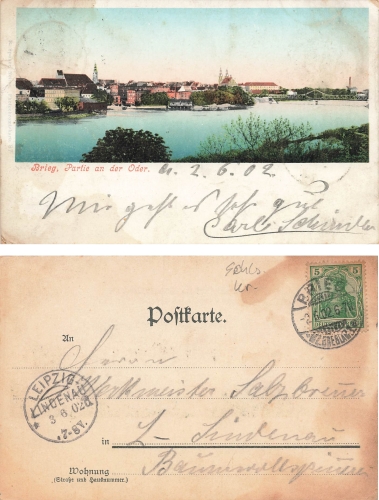 Brieg, Partie an der Oder. 2.6.02
Mir geht es sehr gut
Postkarte.
5 5
BRIEG
An
Herrn
Werkmeister Salzbrenner
LEIPZIG-
LINDENAU
3 6 02
7-8V.
in L-Lindenau
Baumwollspinnerei
Wohnung
(Straße und Hausnummer.)